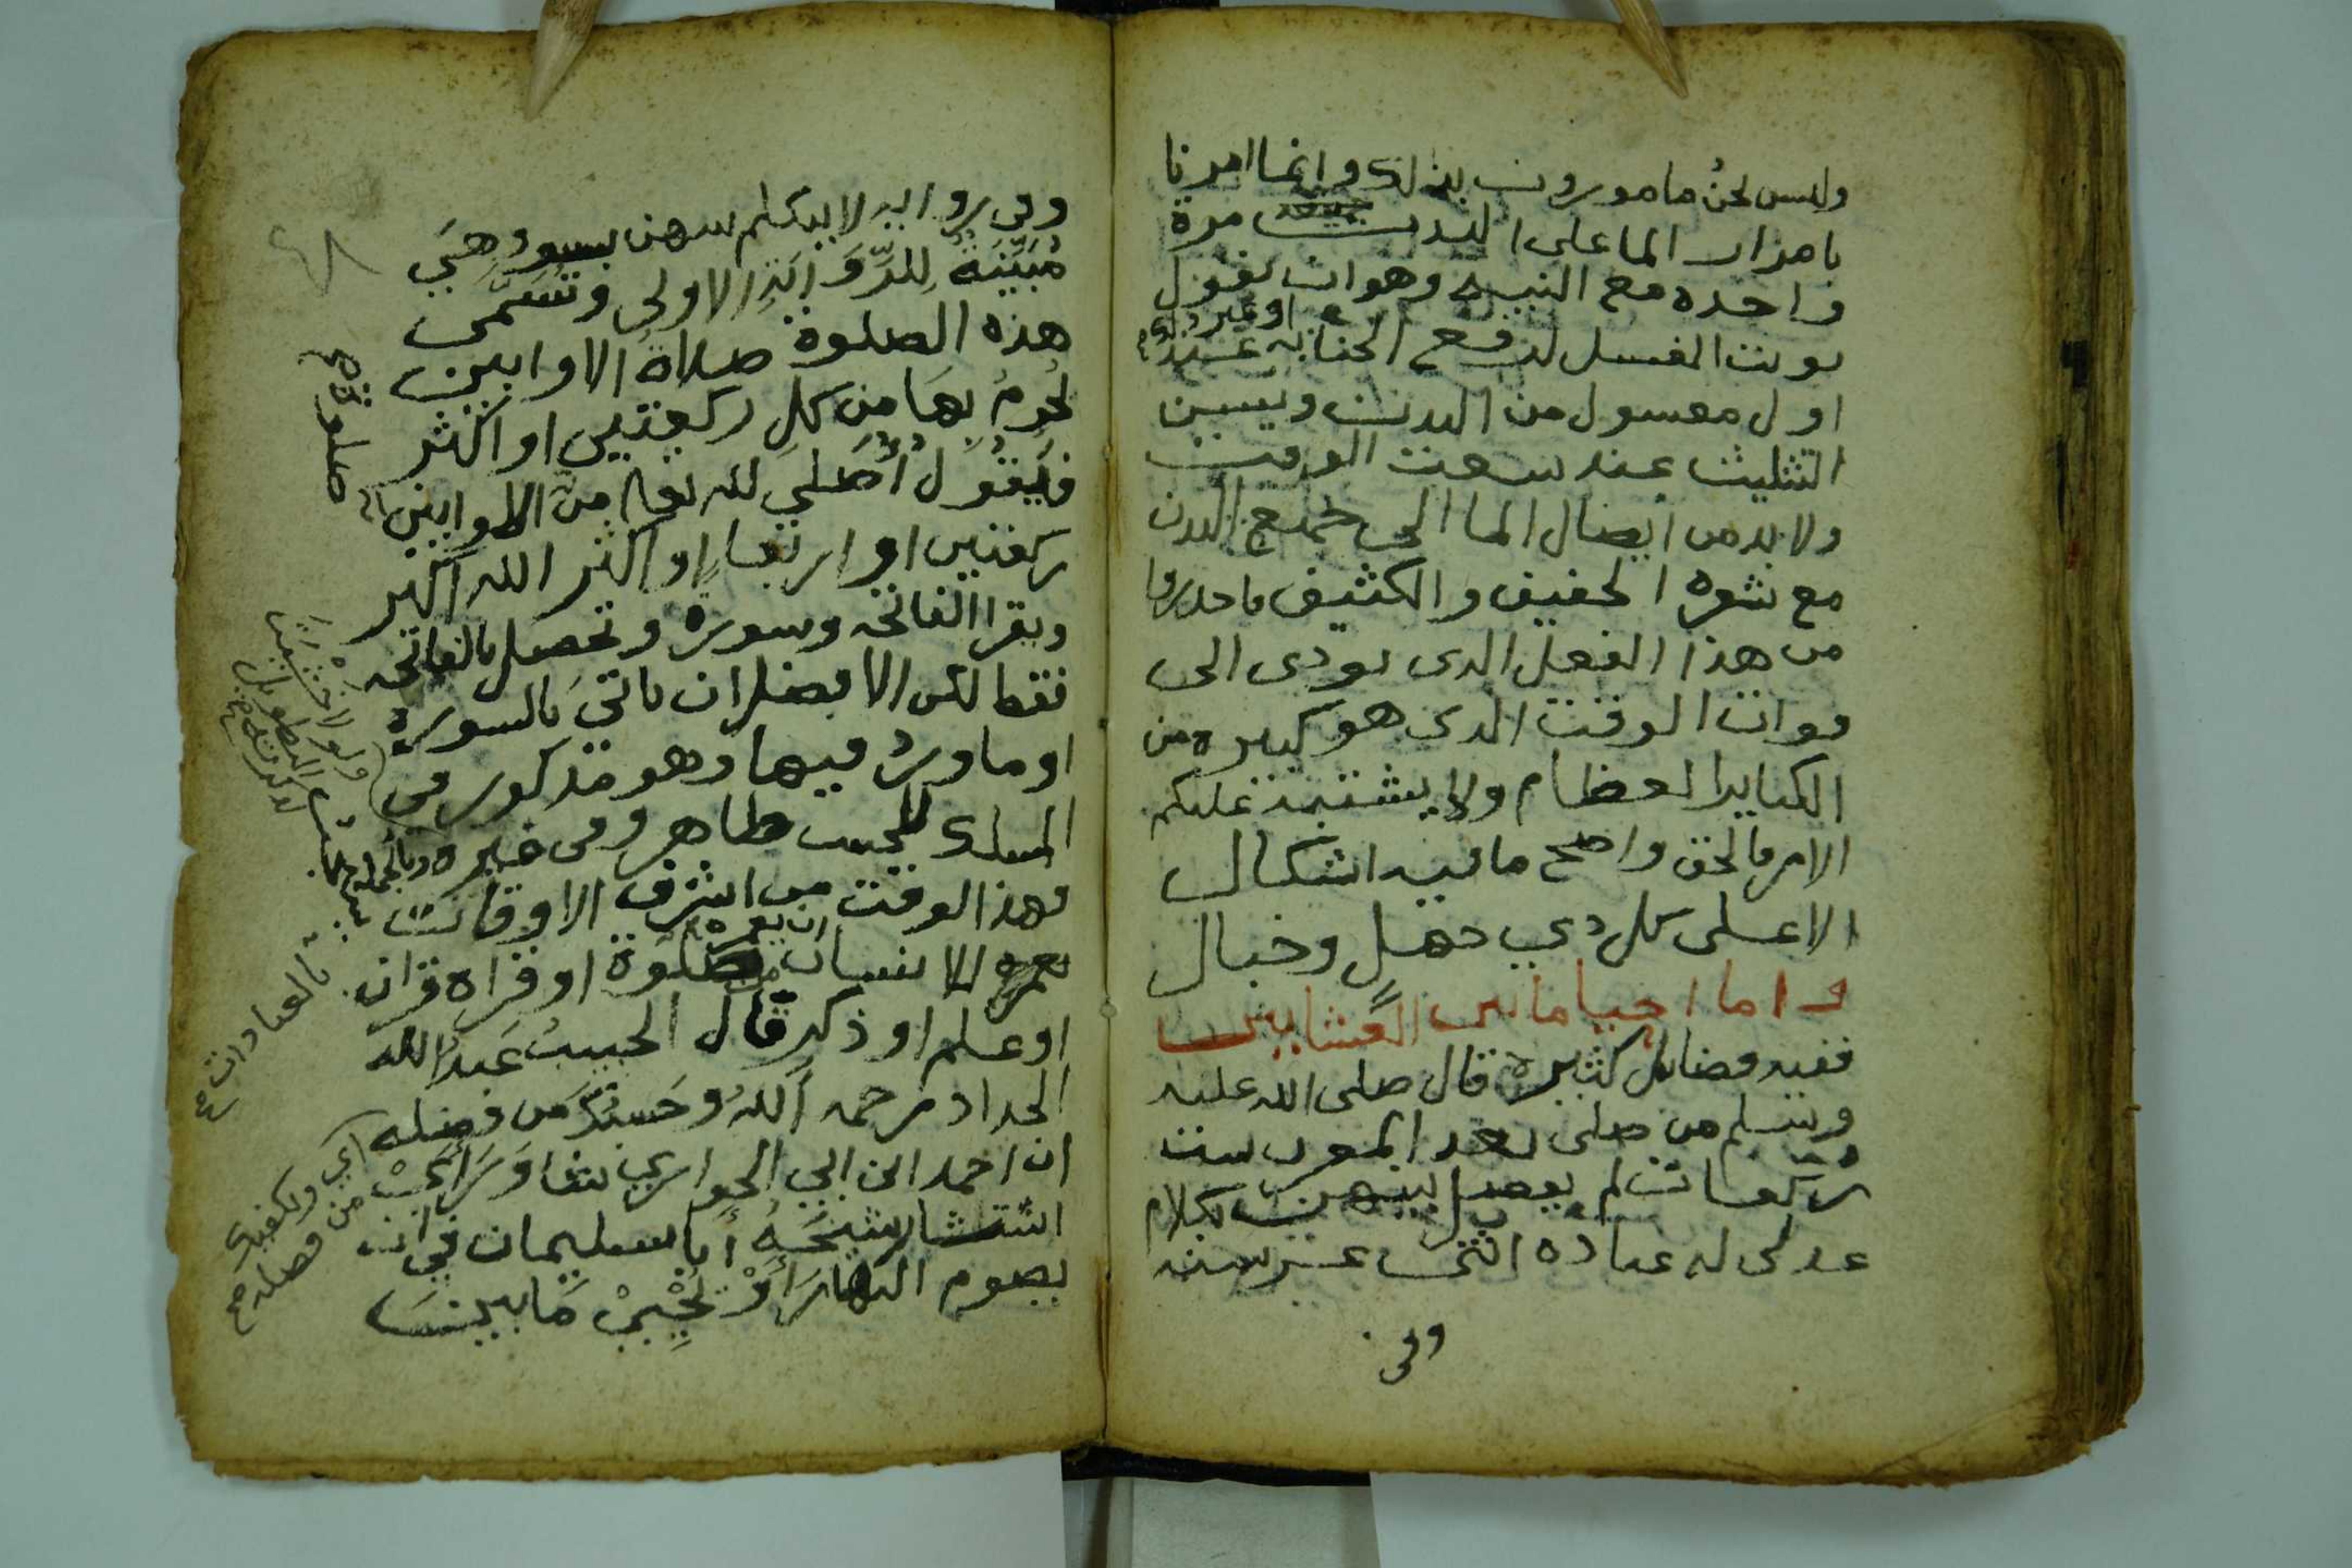 وليس نحن مامورون بذلك وانما امرنا
بامرار الما على البدن مرة
واحده مع النيه وهو ان يقول
نويت الغسل لرفع الجنابه او غير ذلك عند
اول مغسول من البدن ويسن
التثليث عند سعت الوقت
ولا بد من ايصال الما الى جميع البدن
مع شعره الخفيف والكثيف فاحذروا
من هذا الفعل الذى يودى الى
فوات الوقت الذى هو كبيره من
الكباير العظام ولا يشتبه عليكم
الامر فالحق واضح ما فيه اشكال
الا على كل ذي جهل وخبال
واما احيا ما بين العشايين
ففيه فضايل كثيرة قال صلى الله عليه
وسلم من صلى بعد المغرب ست
ركعات لم يفصل بينهن بكلام
عدلن له عباده اثنى عشر سنه
وفى
وفي روايه لا يتكلم بينهن بسوء وهي
مُبَيِّنَةٌ لِلرِّوَايَةِ الاولى وتسَمَّى
هذه الصلوة صلاة الاوابين
يُحرمُ بِهَا من كل ركعتين او اكثر
فَيَقُولُ أُصَلي لله تعالى من الاوابين
صلوة صح
ركعتين او اربعا او اكثر الله اكبر
ويقرا الفاتحه وسورة وتحصل بالفاتحه
فقط لكن الافضل ان ياتي بالسورة
او ما ورد فيها وهو مذكور في
المسلك للحبيب طاهر وفى غيره وبالجمله
ولولا خشيت التطويل لذكرته صح
فهذا الوقت من اشرف الاوقات
ان يعمره
الانسان بصلوة او قراة قران
بالعبادات صح
او علم او ذكر قال الحبيب عَبدُ الله
الحداد رحمه اللهُ وحَسبُكَ من فضله
اي ويكفيك من فضله صح
ان احمد ابن ابي الحواري
استشار شيخَهُ أبا سليمان في ان
يصوم النهارَ أَوْ يُحْيِيْ مَا بينَ